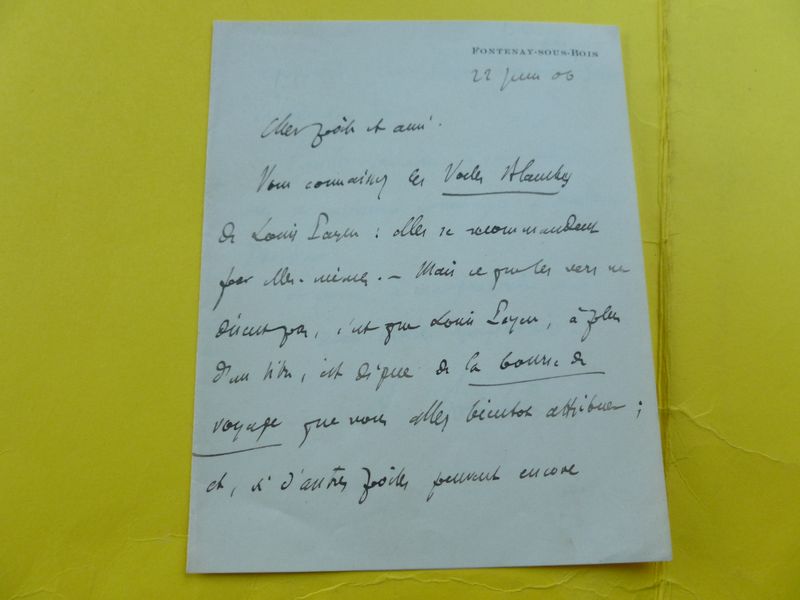 FONTENAY-SOUS-BOIS
22 juin 06
Cher poète et ami.
Vous connaissez les Voiles Blanches
de Louis Payen : elles se recommandent
par elles-mêmes. — Mais ce que les vers ne
disent pas, c'est que Louis Payen, à plus
d'un titre, est digne de la bourse de
voyage que vous allez bientôt attribuer ;
et, si d'autres poètes peuvent encore